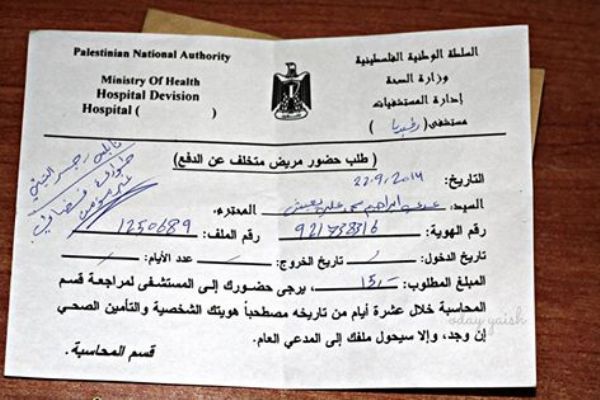 Palestinian National Authority
Ministry Of Health
Hospital Devision
Hospital ( )
السلطة الوطنية الفلسطينية
وزارة الصحة
إدارة المستشفيات
مستشفى ( رفيديا )
( طلب حضور مريض متخلف عن الدفع )
التاريخ: 22.9.2014
السيد: عدي ابراهيم محمد علي يعيش المحترم.
رقم الهوية: 921738316 رقم الملف: 1250689
تاريخ الدخول: تاريخ الخروج: عدد الأيام:
المبلغ المطلوب: ، يرجى حضورك إلى المستشفى لمراجعة قسم
المحاسبة خلال عشرة أيام من تاريخه مصطحباً هويتك الشخصية والتأمين الصحي
إن وجد، وإلا سيحول ملفك إلى المدعي العام.
قسم المحاسبة.
oday yaish